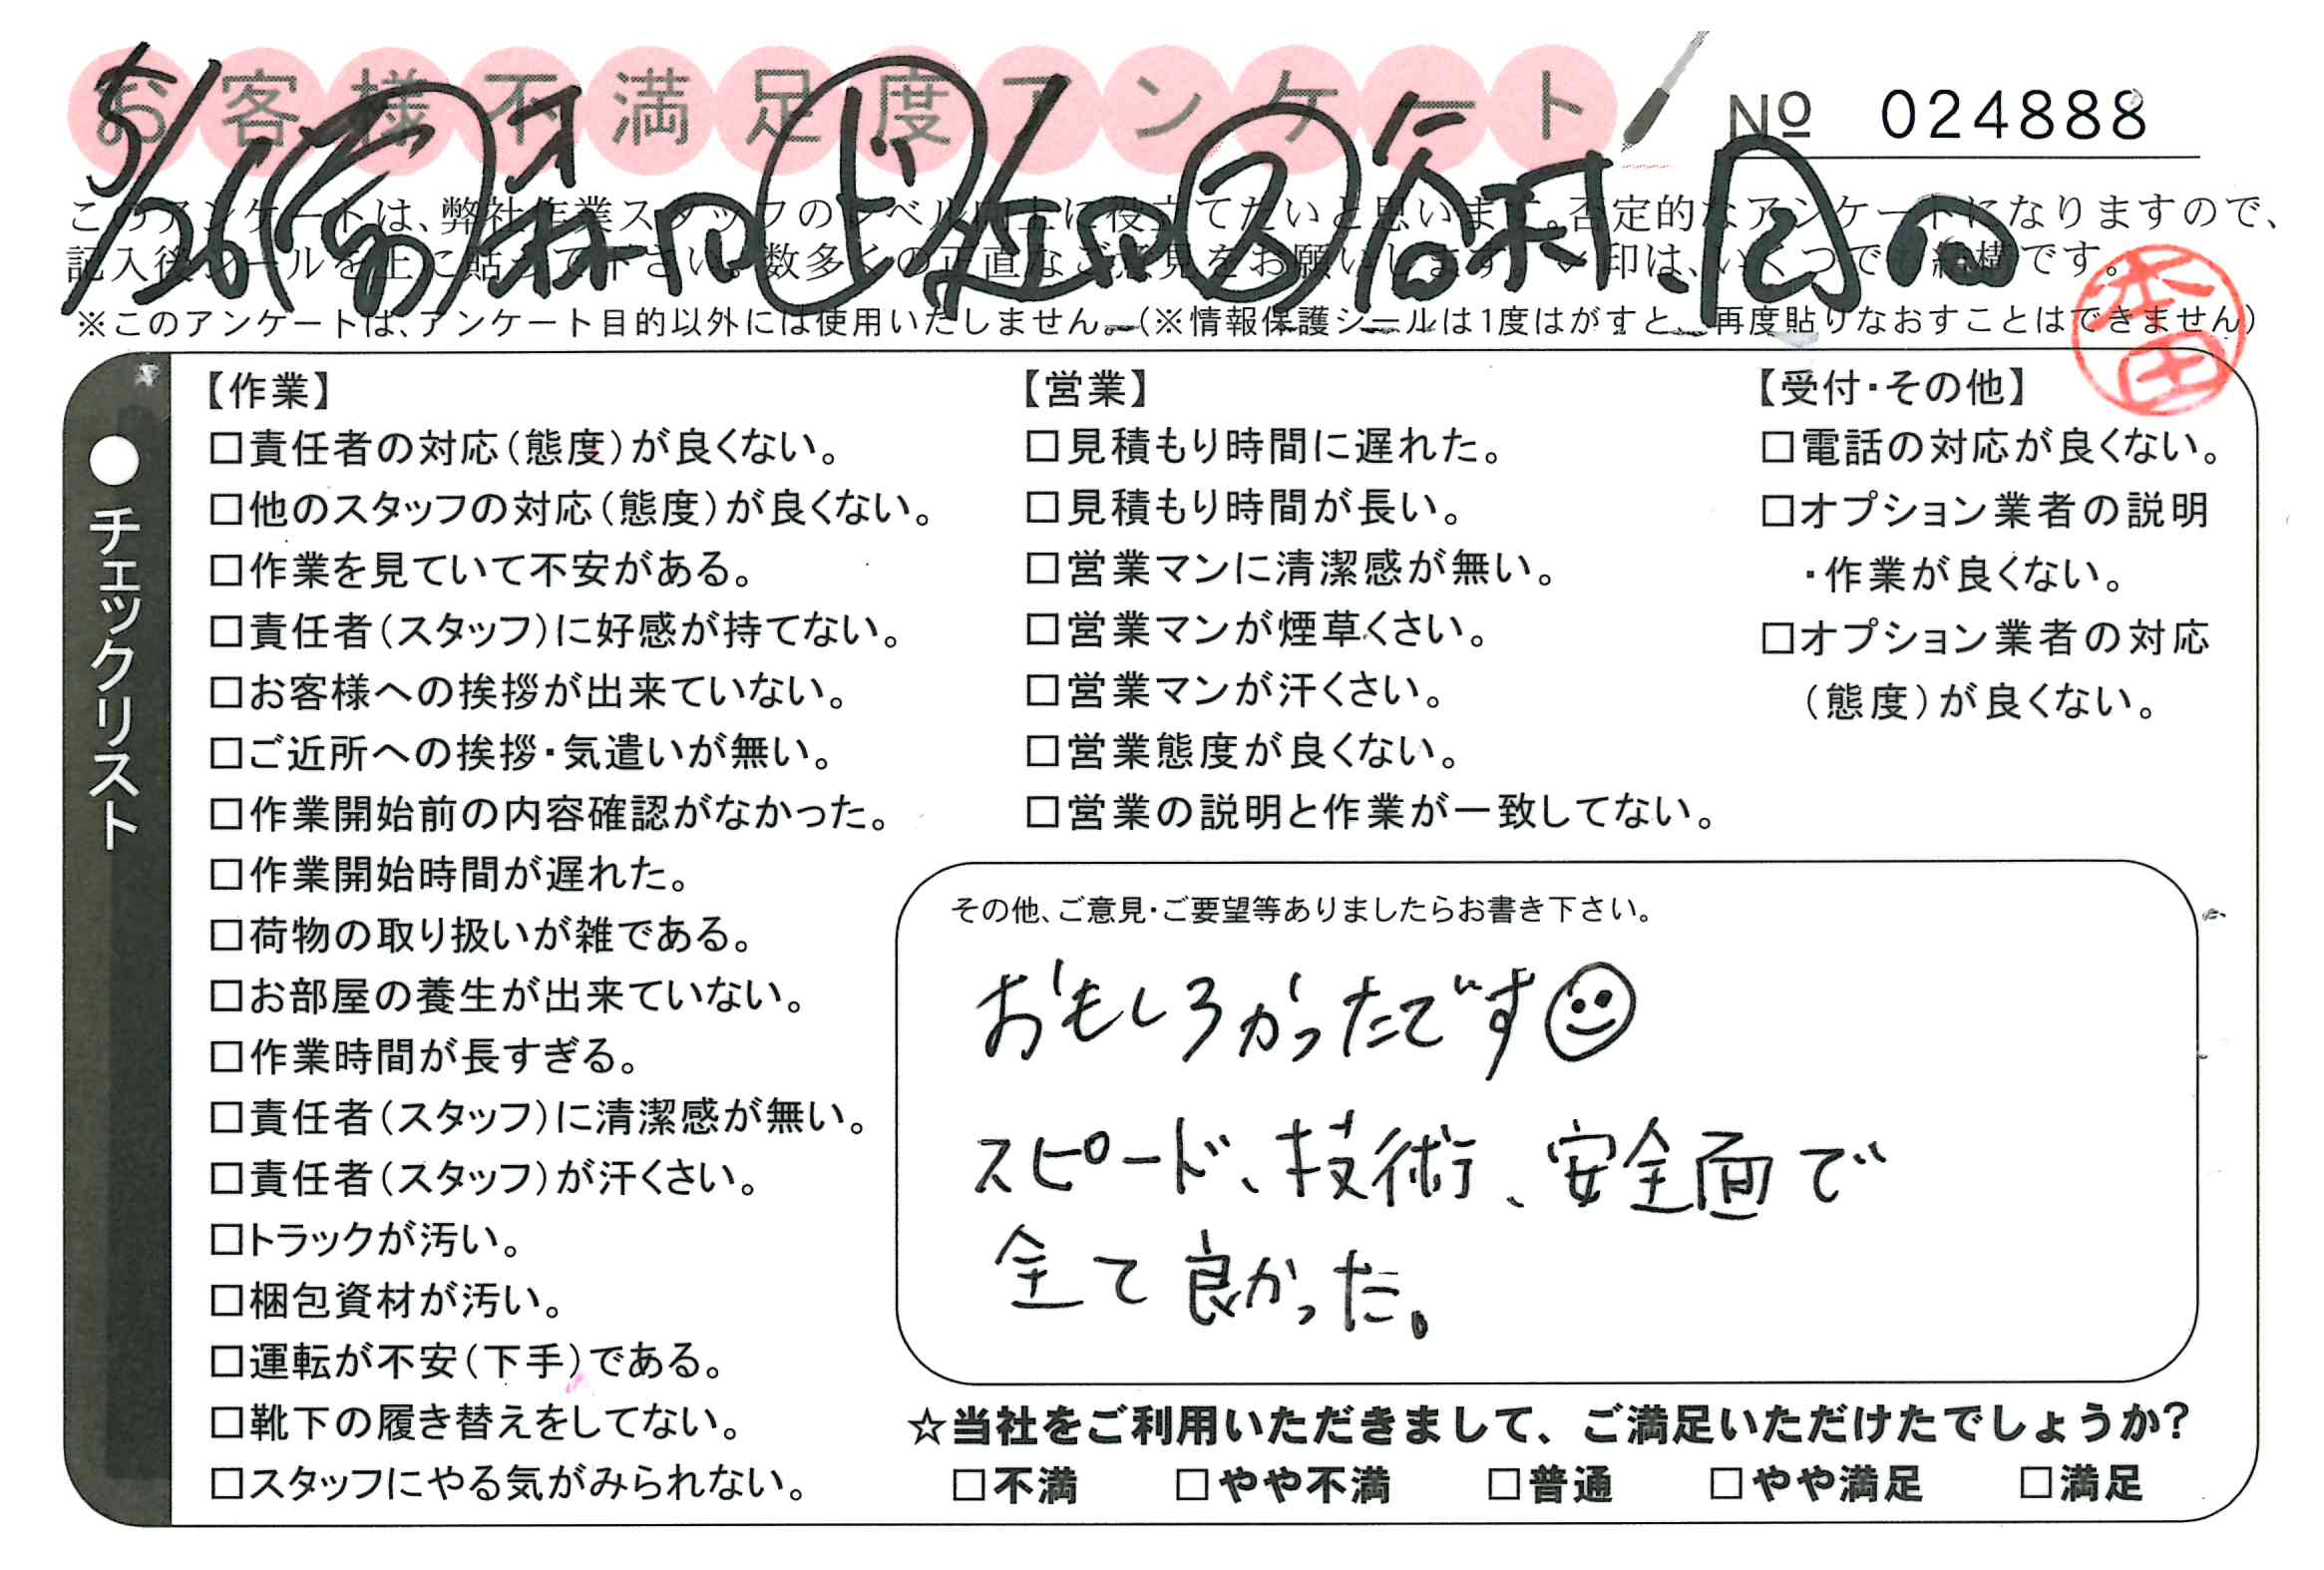 お客様不満足度アンケート
No 024888
5/26
このアンケートは、弊社作業スタッフのレベル向上に役立てたいと思います。否定的なアンケートになりますので、
記入後シールを上に貼って下さい。数多くの正直なご意見をお願いします。✓印は、いくつでも結構です。
※このアンケートは、アンケート目的以外には使用いたしません。(※情報保護シールは1度はがすと、再度貼りなおすことはできません)
本田
●チェックリスト
【作業】
□責任者の対応(態度)が良くない。
□他のスタッフの対応(態度)が良くない。
□作業を見ていて不安がある。
□責任者(スタッフ)に好感が持てない。
□お客様への挨拶が出来ていない。
□ご近所への挨拶・気遣いが無い。
□作業開始前の内容確認がなかった。
□作業開始時間が遅れた。
□荷物の取り扱いが雑である。
□お部屋の養生が出来ていない。
□作業時間が長すぎる。
□責任者(スタッフ)に清潔感が無い。
□責任者(スタッフ)が汗くさい。
□トラックが汚い。
□梱包資材が汚い。
□運転が不安(下手)である。
□靴下の履き替えをしてない。
□スタッフにやる気がみられない。
【営業】
□見積もり時間に遅れた。
□見積もり時間が長い。
□営業マンに清潔感が無い。
□営業マンが煙草くさい。
□営業マンが汗くさい。
□営業態度が良くない。
□営業の説明と作業が一致してない。
【受付・その他】
□電話の対応が良くない。
□オプション業者の説明
・作業が良くない。
□オプション業者の対応
(態度)が良くない。
その他、ご意見・ご要望等ありましたらお書き下さい。
おもしろかったです☺
スピード、技術、安全面で
全て良かった。
☆当社をご利用いただきまして、ご満足いただけたでしょうか?
□不満 □やや不満 □普通 □やや満足 □満足